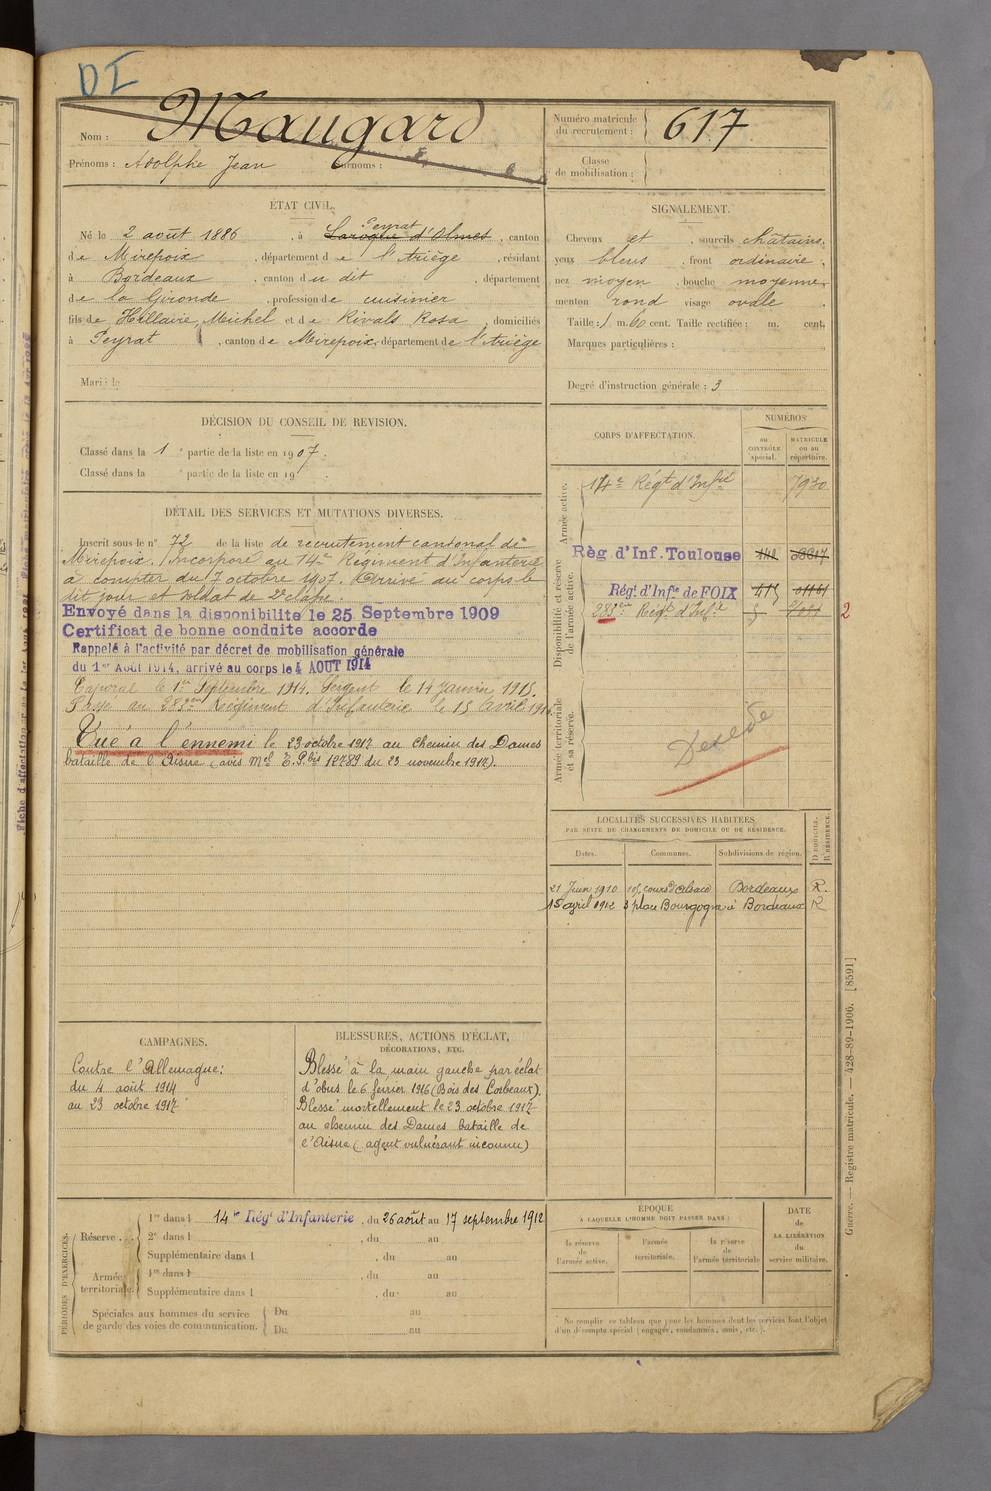 DI
Nom : Maugard
Prénoms : Adolphe Jean Surnoms :
Numéro matricule du recrutement : 617
Classe de mobilisation :
ÉTAT CIVIL.
Né le 2 août 1886, à Laroque d'Olmes Peyrat, canton
de Mirepoix, département de l'Ariège, résidant
à Bordeaux, canton du dit, département
de la Gironde, profession de cuisinier
fils de Hillaire, Michel et de Rivals Rosa, domiciliés
à Peyrat, canton de Mirepoix, département de l'Ariège
Marié le
SIGNALEMENT.
Cheveux et, sourcils châtains,
yeux bleus, front ordinaire,
nez moyen, bouche moyenne,
menton rond visage ovale
Taille : 1 m. 60 cent. Taille rectifiée : m. cent.
Marques particulières :
Degré d'instruction générale : 3
DÉCISION DU CONSEIL DE REVISION.
Classé dans la 1e partie de la liste en 1907.
Classé dans la e partie de la liste en 19 .
DÉTAIL DES SERVICES ET MUTATIONS DIVERSES.
Inscrit sous le n° 72 de la liste de recrutement cantonal de
Mirepoix. Incorporé au 14e Régiment d'Infanterie
à compter du 7 octobre 1907. Arrivé au corps le
dit jour et soldat de 2e classe.
Envoyé dans la disponibilité le 25 Septembre 1909
Certificat de bonne conduite accordé
Rappelé à l'activité par décret de mobilisation générale
du 1er Août 1914, arrivé au corps le 4 AOUT 1914
Caporal le 1er Septembre 1914. Sergent le 14 Janvier 1915.
Passé au 283me Régiment d'Infanterie le 15 Avril 1916.
Tué à l'ennemi le 23 octobre 1917 au Chemin des Dames
bataille de l'Aisne (avis Mel E.P.bis 12789 du 23 novembre 1917).
CORPS D'AFFECTATION.
NUMÉROS
au CONTRÔLE spécial.
MATRICULE ou au répertoire.
Armée active.
14e Régt d'Infie 7930
Disponibilité et réserve de l'armée active.
Règ. d'Inf. Toulouse
Régt d'Infie de FOIX 415
283me Régt d'Infie
2
Armée territoriale et sa réserve.
Décédé
LOCALITÉS SUCCESSIVES HABITÉES
PAR SUITE DE CHANGEMENTS DE DOMICILE OU DE RÉSIDENCE.
Dates. Communes. Subdivisions de région. D DOMICILE. R RÉSIDENCE.
21 Juin 1910 101, cours d'Alsace Bordeaux R.
15 avril 1912 3 place Bourgogne à Bordeaux R
CAMPAGNES.
Contre l'Allemagne:
du 4 août 1914
au 23 octobre 1917
BLESSURES, ACTIONS D'ÉCLAT,
DÉCORATIONS, ETC.
Blessé à la main gauche par éclat
d'obus le 6 février 1916 (Bois des Corbeaux).
Blessé mortellement le 23 octobre 1917
au chemin des Dames bataille de
l'Aisne (agent vulnérant inconnu)
PÉRIODES D'EXERCICES.
Réserve
1re dans l 14e Régt d'Infanterie, du 26 août au 17 septembre 1912
2e dans l , du au
Supplémentaire dans l , du au
Armée territoriale.
1re dans l , du au
Supplémentaire dans l , du au
Spéciales aux hommes du service
de garde des voies de communication.
Du au
Du au
ÉPOQUE
A LAQUELLE L'HOMME DOIT PASSER DANS :
la réserve de l'armée active.
l'armée territoriale.
la réserve de l'armée territoriale
DATE de LA LIBÉRATION du service militaire.
Ne remplir ce tableau que pour les hommes dont les services font l'objet
d'un décompte spécial (engagés, condamnés, omis, etc.).
Guerre. — Registre matricule. — 428-89-1906. [8591]